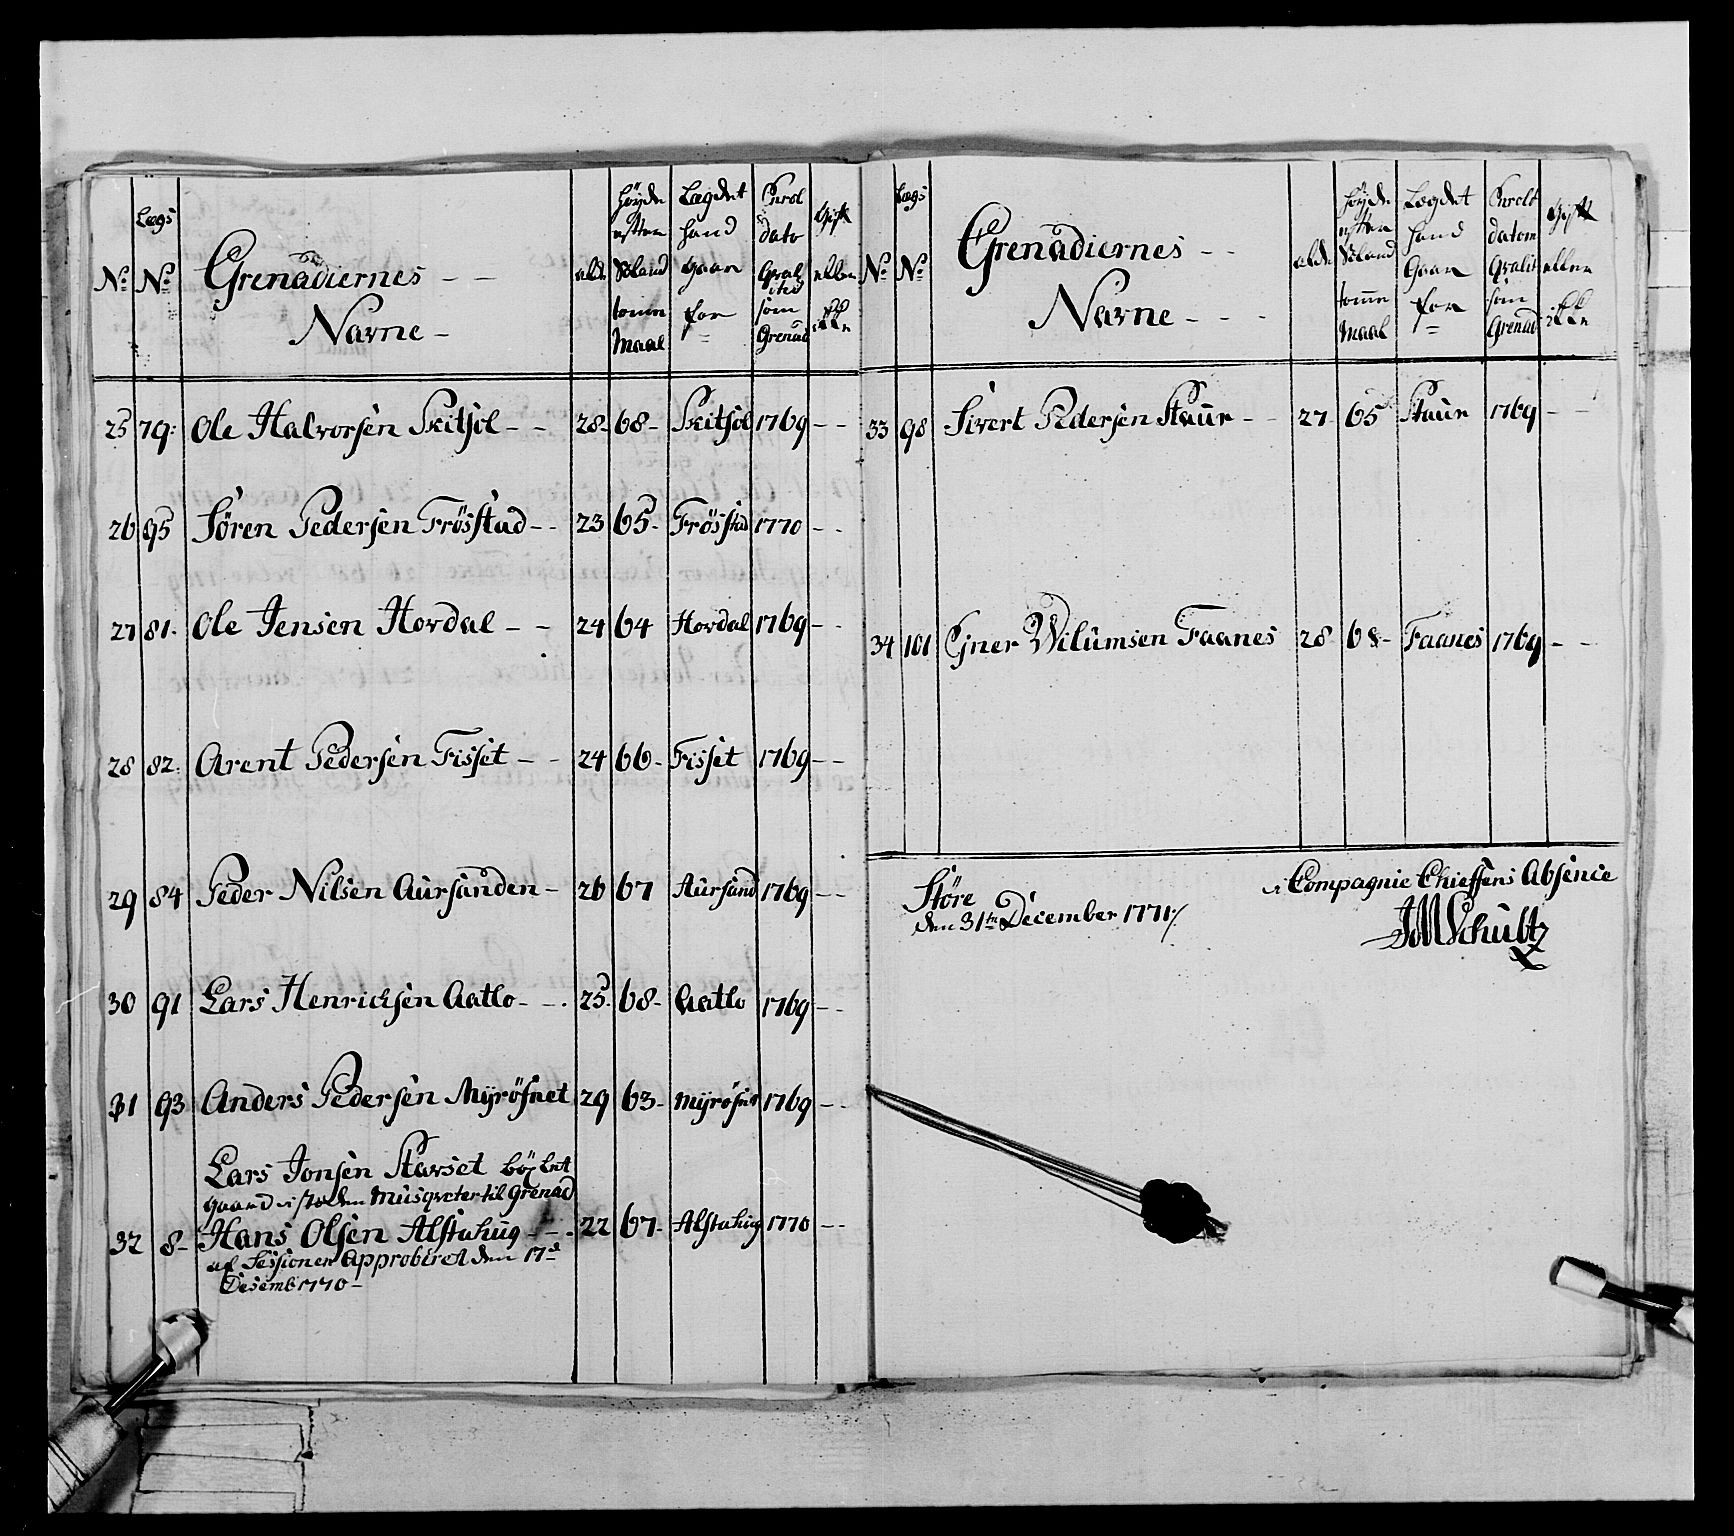 No
Lægs No
Grenadiernes
Navne
alder
Höyde
Sæland
tomme
Maal
Lægdet
hand
gaar
for
Enrol
dato
Qvalited
som
Grenad
Gift
eller
ikke
25 79 Ole Halvorsen Skitsol 28 68 Skitsol 1769
26 95 Sören Pedersen Frösstad 23 65 Frösstad 1770
27 81 Ole Jensen Hovdal 24 64 Hovdal 1769
28 82 Arent Pedersen Fisset 24 66 Fisset 1769
29 84 Peder Nilsen Aursanden 26 67 Aursand 1769
30 91 Lars Henricksen Aatlo 25 68 Aatlo 1769
31 93 Anders Pedersen Myrösnet 29 63 Myrösnet 1769
Lars Jonsen Starset
Musqveter til Grenad
32 8 Hans Olsen Alstahug 22 67 Alstahug 1770
af Sessionen Approberet den 17d
Desemb 1770
No
Lægs No
Grenadiernes
Navne
alder
Höyde
efter
Sæland
tomme
Maal
Lægdet
hand
Gaar
for
Enrolt
datom
Qvalit
som
Grenad
Gift
eller
ikke
33 98 Sivert Pedersen Staur 27 65 Staur 1769
34 101 Ejner Wilumsen Faanes 28 68 Faanes 1769
Störe
den 31te December 1771
i Compagnie Chieffens Absence
JMSchultz